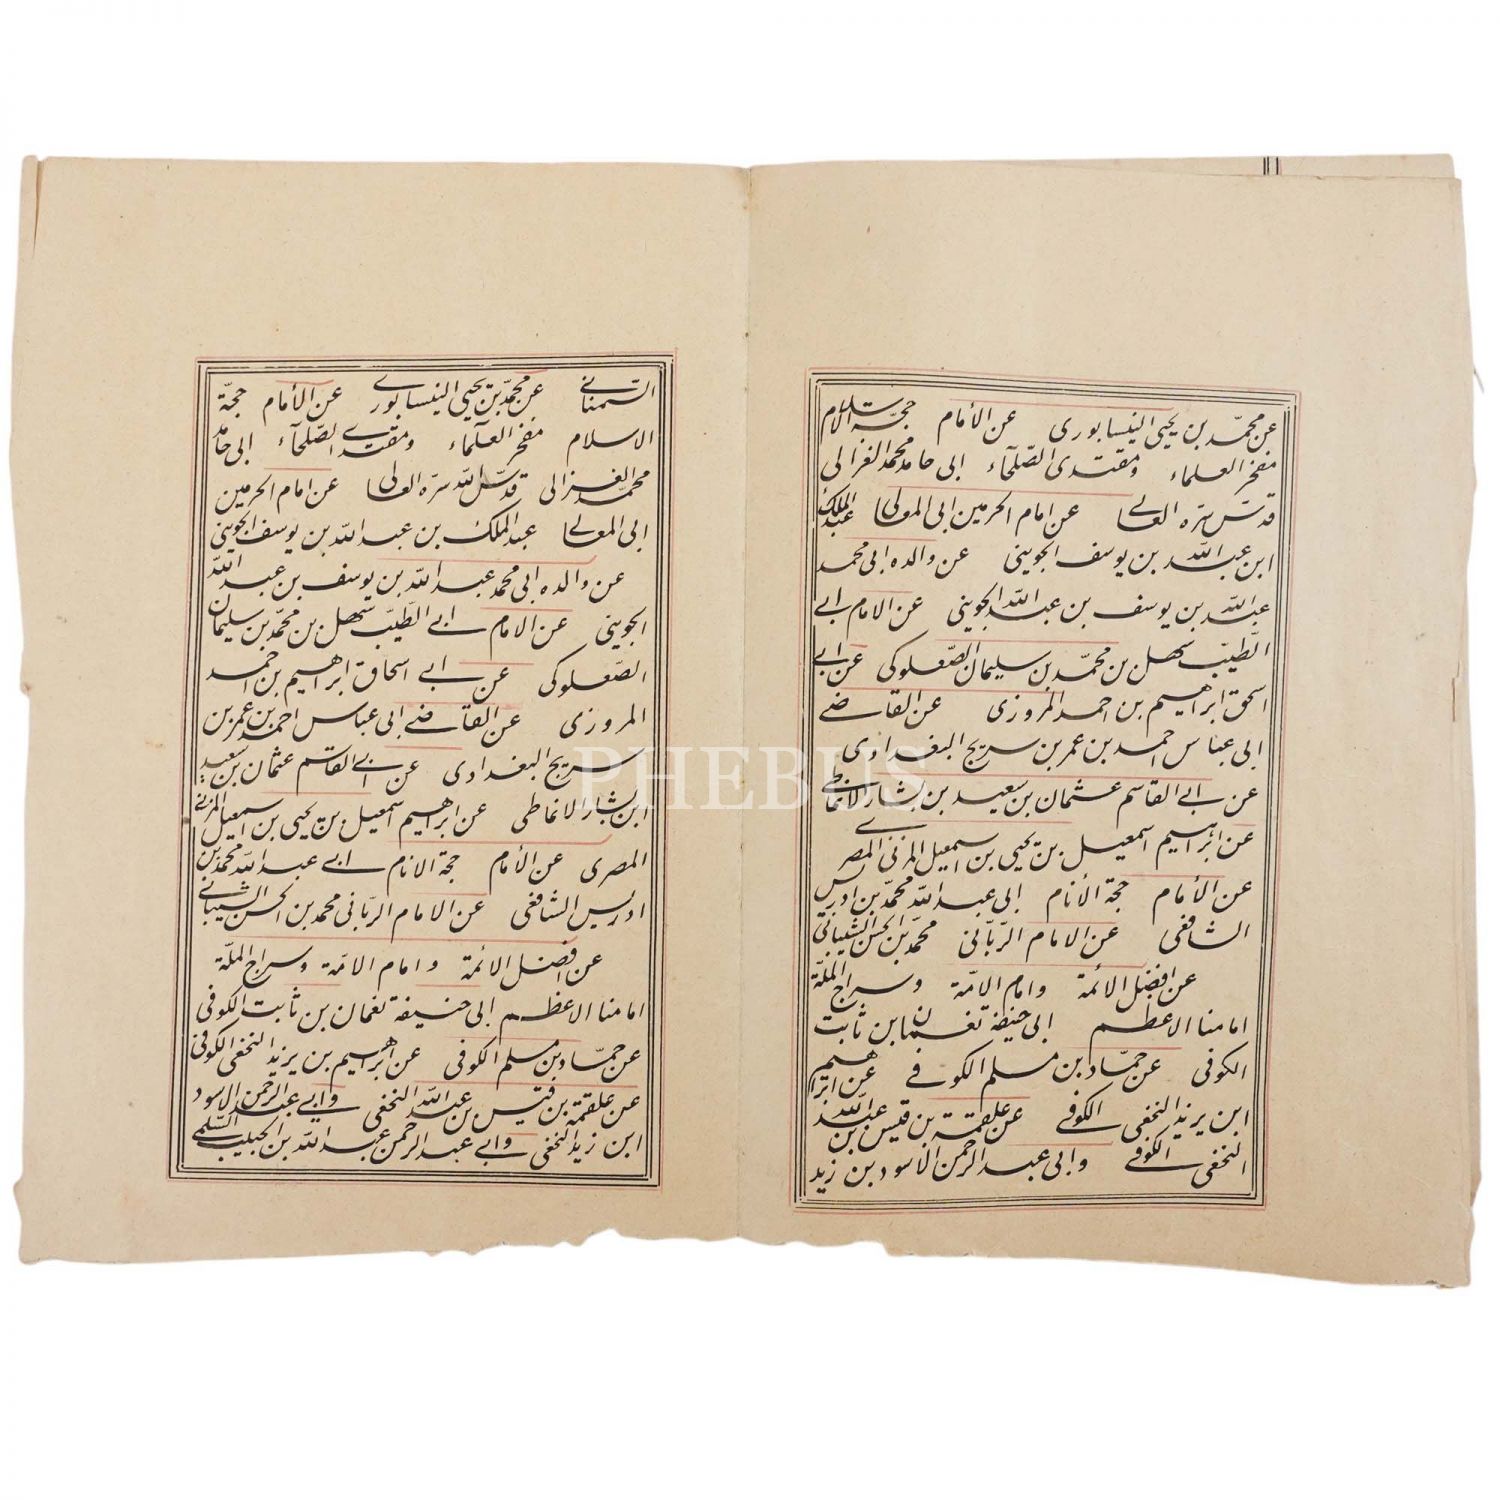 عن محمّد بن يحيى النيسابورى عن الأمام حجّة الاسلام
مفخر العلماء ومقتدى الصّلحآء ابى حامد محمد الغزالى
قدّس سرّه العالى عن امام الحرمين ابى المعالى عبد الملك
ابن عبد اللّٰه بن يوسف الجوينى عن والده ابى محمد
عبد اللّٰه بن يوسف بن عبد اللّٰه الجوينى عن الامام ابى
الطّيب سهل بن محمّد بن سليمان الصّعلوكى عن ابى
اسحق ابراهيم بن احمد المروزى عن القاضى
ابى عباس احمد بن عمر بن سريج البغدادى
عن ابى القاسم عثمان بن سعيد بن بشار الانماطى
عن ابراهيم اسمعيل بن يحيى بن اسمعيل المزنى المصرى
عن الأمام حجة الأنام ابى عبد اللّٰه محمّد بن ادريس
الشافعى عن الامام الربّانى محمّد بن الحسن الشيبانى
عن افضل الائمة وامام الامّة وسراج الملّة
امامنا الاعظم ابى حنيفة نعمان ابن ثابت
الكوفى عن حمّاد بن مسلم الكوفى عن ابراهيم
ابن يزيد النخعى الكوفى عن علقمة بن قيس بن عبد اللّٰه
النخعى الكوفى وابى عبد الرحمن الاسود بن زيد
السّمنانى عن محمّد بن يحيى النيسابورى عن الأمام حجّة
الاسلام مفخر العلماء ومقتدى الصّلحآء ابى حامد
محمّد الغزالى قدّس اللّٰه سرّه العالى عن امام الحرمين
ابى المعالى عبد الملك بن عبد اللّٰه بن يوسف الجوينى
عن والده ابى محمد عبد اللّٰه بن يوسف بن عبد اللّٰه
الجوينى عن الامام ابى الطّيب سهل بن محمّد بن سليمان
الصّعلوكى عن ابى اسحاق ابراهيم بن احمد
المروزى عن القاضى ابى عباس احمد بن عمر بن
سريج البغدادى عن ابى القاسم عثمان بن سعيد
ابن بشار الانماطى عن ابراهيم اسمعيل بن يحيى بن اسمعيل المزنى
المصرى عن الأمام حجة الانام ابى عبد اللّٰه محمّد بن
ادريس الشافعى عن الامام الربّانى محمد بن الحسن الشيبانى
عن افضل الائمة وامام الامّة وسراج الملّة
امامنا الاعظم ابى حنيفة نعمان بن ثابت الكوفى
عن حمّاد بن مسلم الكوفى عن ابراهيم بن يزيد النخعى الكوفى
عن علقمة بن قيس بن عبد اللّٰه النخعى وابى عبد الرحمن الاسود
ابن زيد النخعى وابى عبد الرحمن عبد اللّٰه بن الحبيب السّلمى
PHEBUS